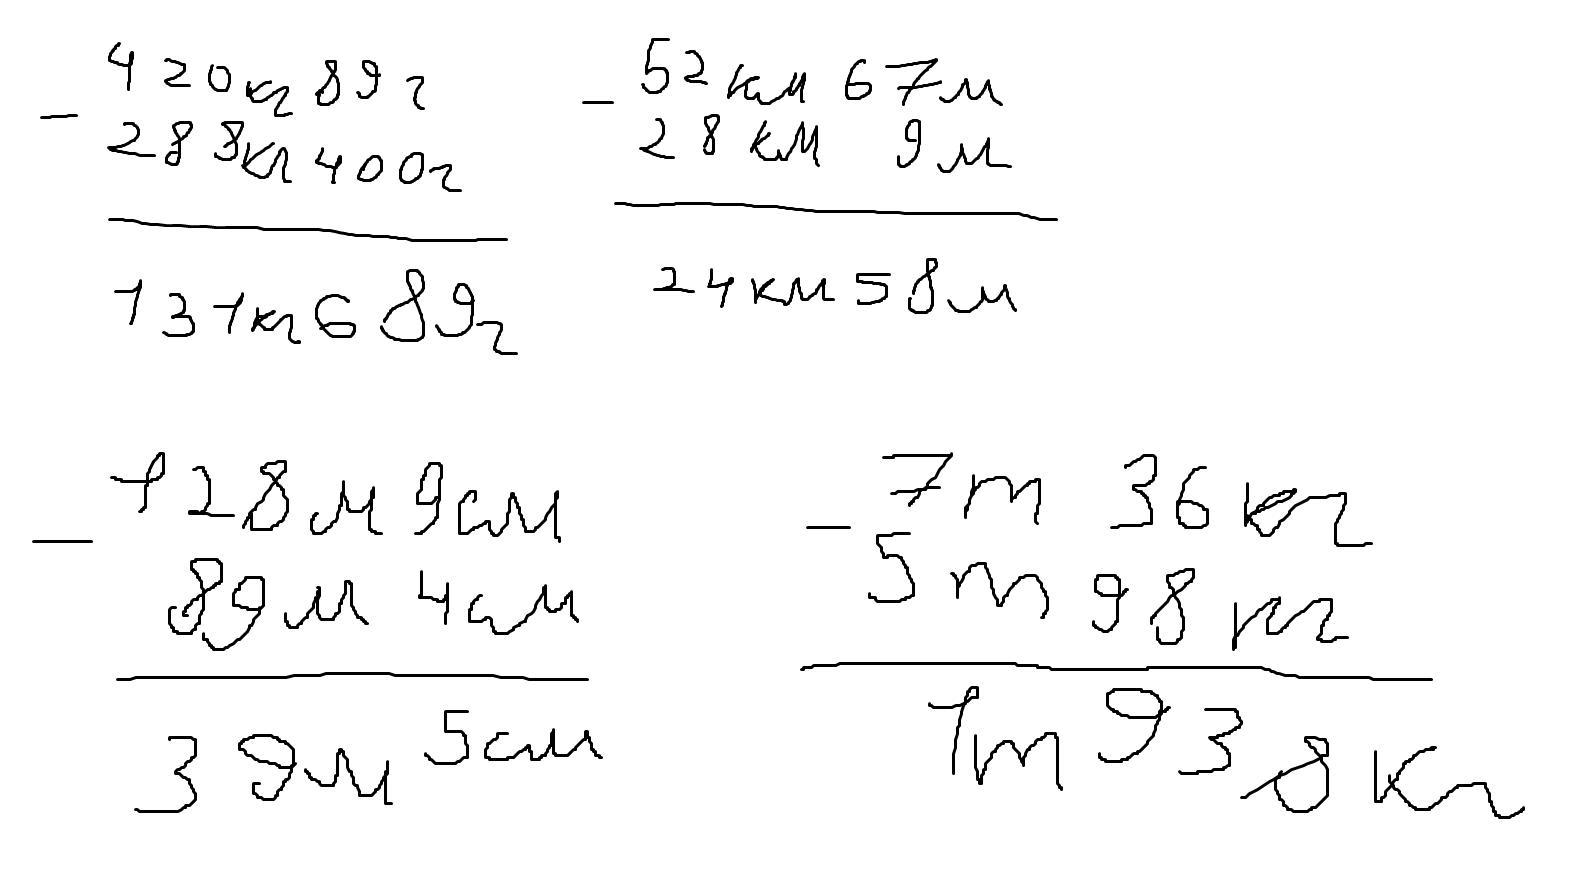 420кг 89г
- 288кг 400г
131кг 689г
52км 67м
- 28км 9м
24км 58м
128м 9см
- 89м 4см
39м 5см
7т 36кг
- 5т 98кг
1т 938кг